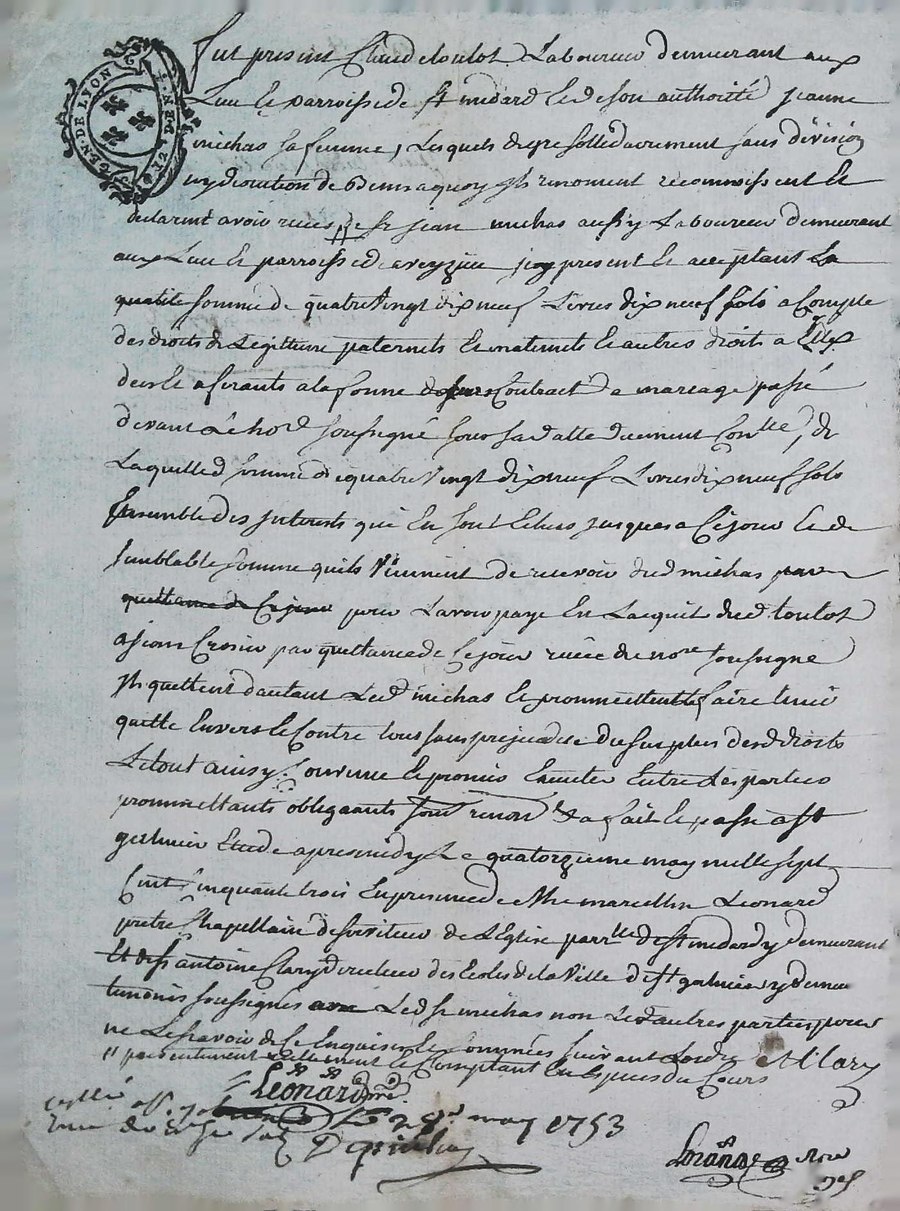 GEN. DE LYON
Fut present Claude toulot Laboureur demeurant aux
Lac et parroisse de St medard led de son authorité jeanne
michas sa femme, Lesquels de gre sollidairement sans division
ny discution de biens a quoy ils renoncent reconnoissent et
declarent avoir reçus // de Sr jean michas aussy Laboureur demeurant
aux Lac et parroisse de veyzieu jcy present et acceptant La
somme de quatre vingt dix neuf Livres dix neuf sols a Compte
des droits de Legitime paternels et maternels et autres droits a Elle
deus et aferants a la forme de Contract de mariage passé
devant Le nore soussigné sous sa datte duement Conllé, de
Laquelled somme de quatre vingt dix neuf Livres dix neuf sols
Ensemble des jnterests qui En sont Echus jusques a Ce jour et de
semblable somme quils viennent de recevoir dud michas par
quittance de Ce jour pour Lavoir paye En Lacquit dud toulot
a jean Crosier par quittance de Ce jour reçue du nore soussigne
jls quittent dautant Led michas et promettent faire tenir
quitte Envers et Contre tous sans prejudice du surplus desd droits
Le tout ainsy Convenu et promis Executer Entre Les parties
promettants obligeants renonts &a fait et passé a St
galmier Etude apres midy Le quatorzieme may mille sept
Cent Cinquante trois En presence de Mre marcellin Leonard
pretre Chapellain desserviteur de LEglise parrlle de St medard y demeurant
Et de Sr antoine Clary directeur des Ecoles de la Ville de St galmier y demeu
temoins soussignes avec Led Sr michas non Lesd autres parties pour
ne Le sçavoir de Ce Enquises et sommées suivant Lordre A Clary
// presentement reellement et Comptant En Especes du Cours
Leonard ptre
Le 28 may 1753
nore